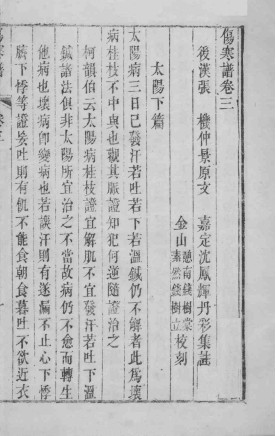 傷寒譜卷三
後漢張　機仲景原文　嘉定沈鳳輝丹彩集註
金山
憩南錢樹棠
素然錢樹立
校刻
太陽下篇
太陽病三日已發汗若吐若下若溫鍼仍不解者此爲壞
病桂枝不中與也觀其脈證知犯何逆隨證治之
柯韻伯云太陽病桂枝證宜解肌不宜發汗若吐下溫
鍼諸法俱非太陽所宜治之不當故病仍不愈而轉生
他病也壞病即變病也若誤汗則有遂漏不止心下悸
臍下悸等證妄吐則有飢不能食朝食暮吐不欲近衣